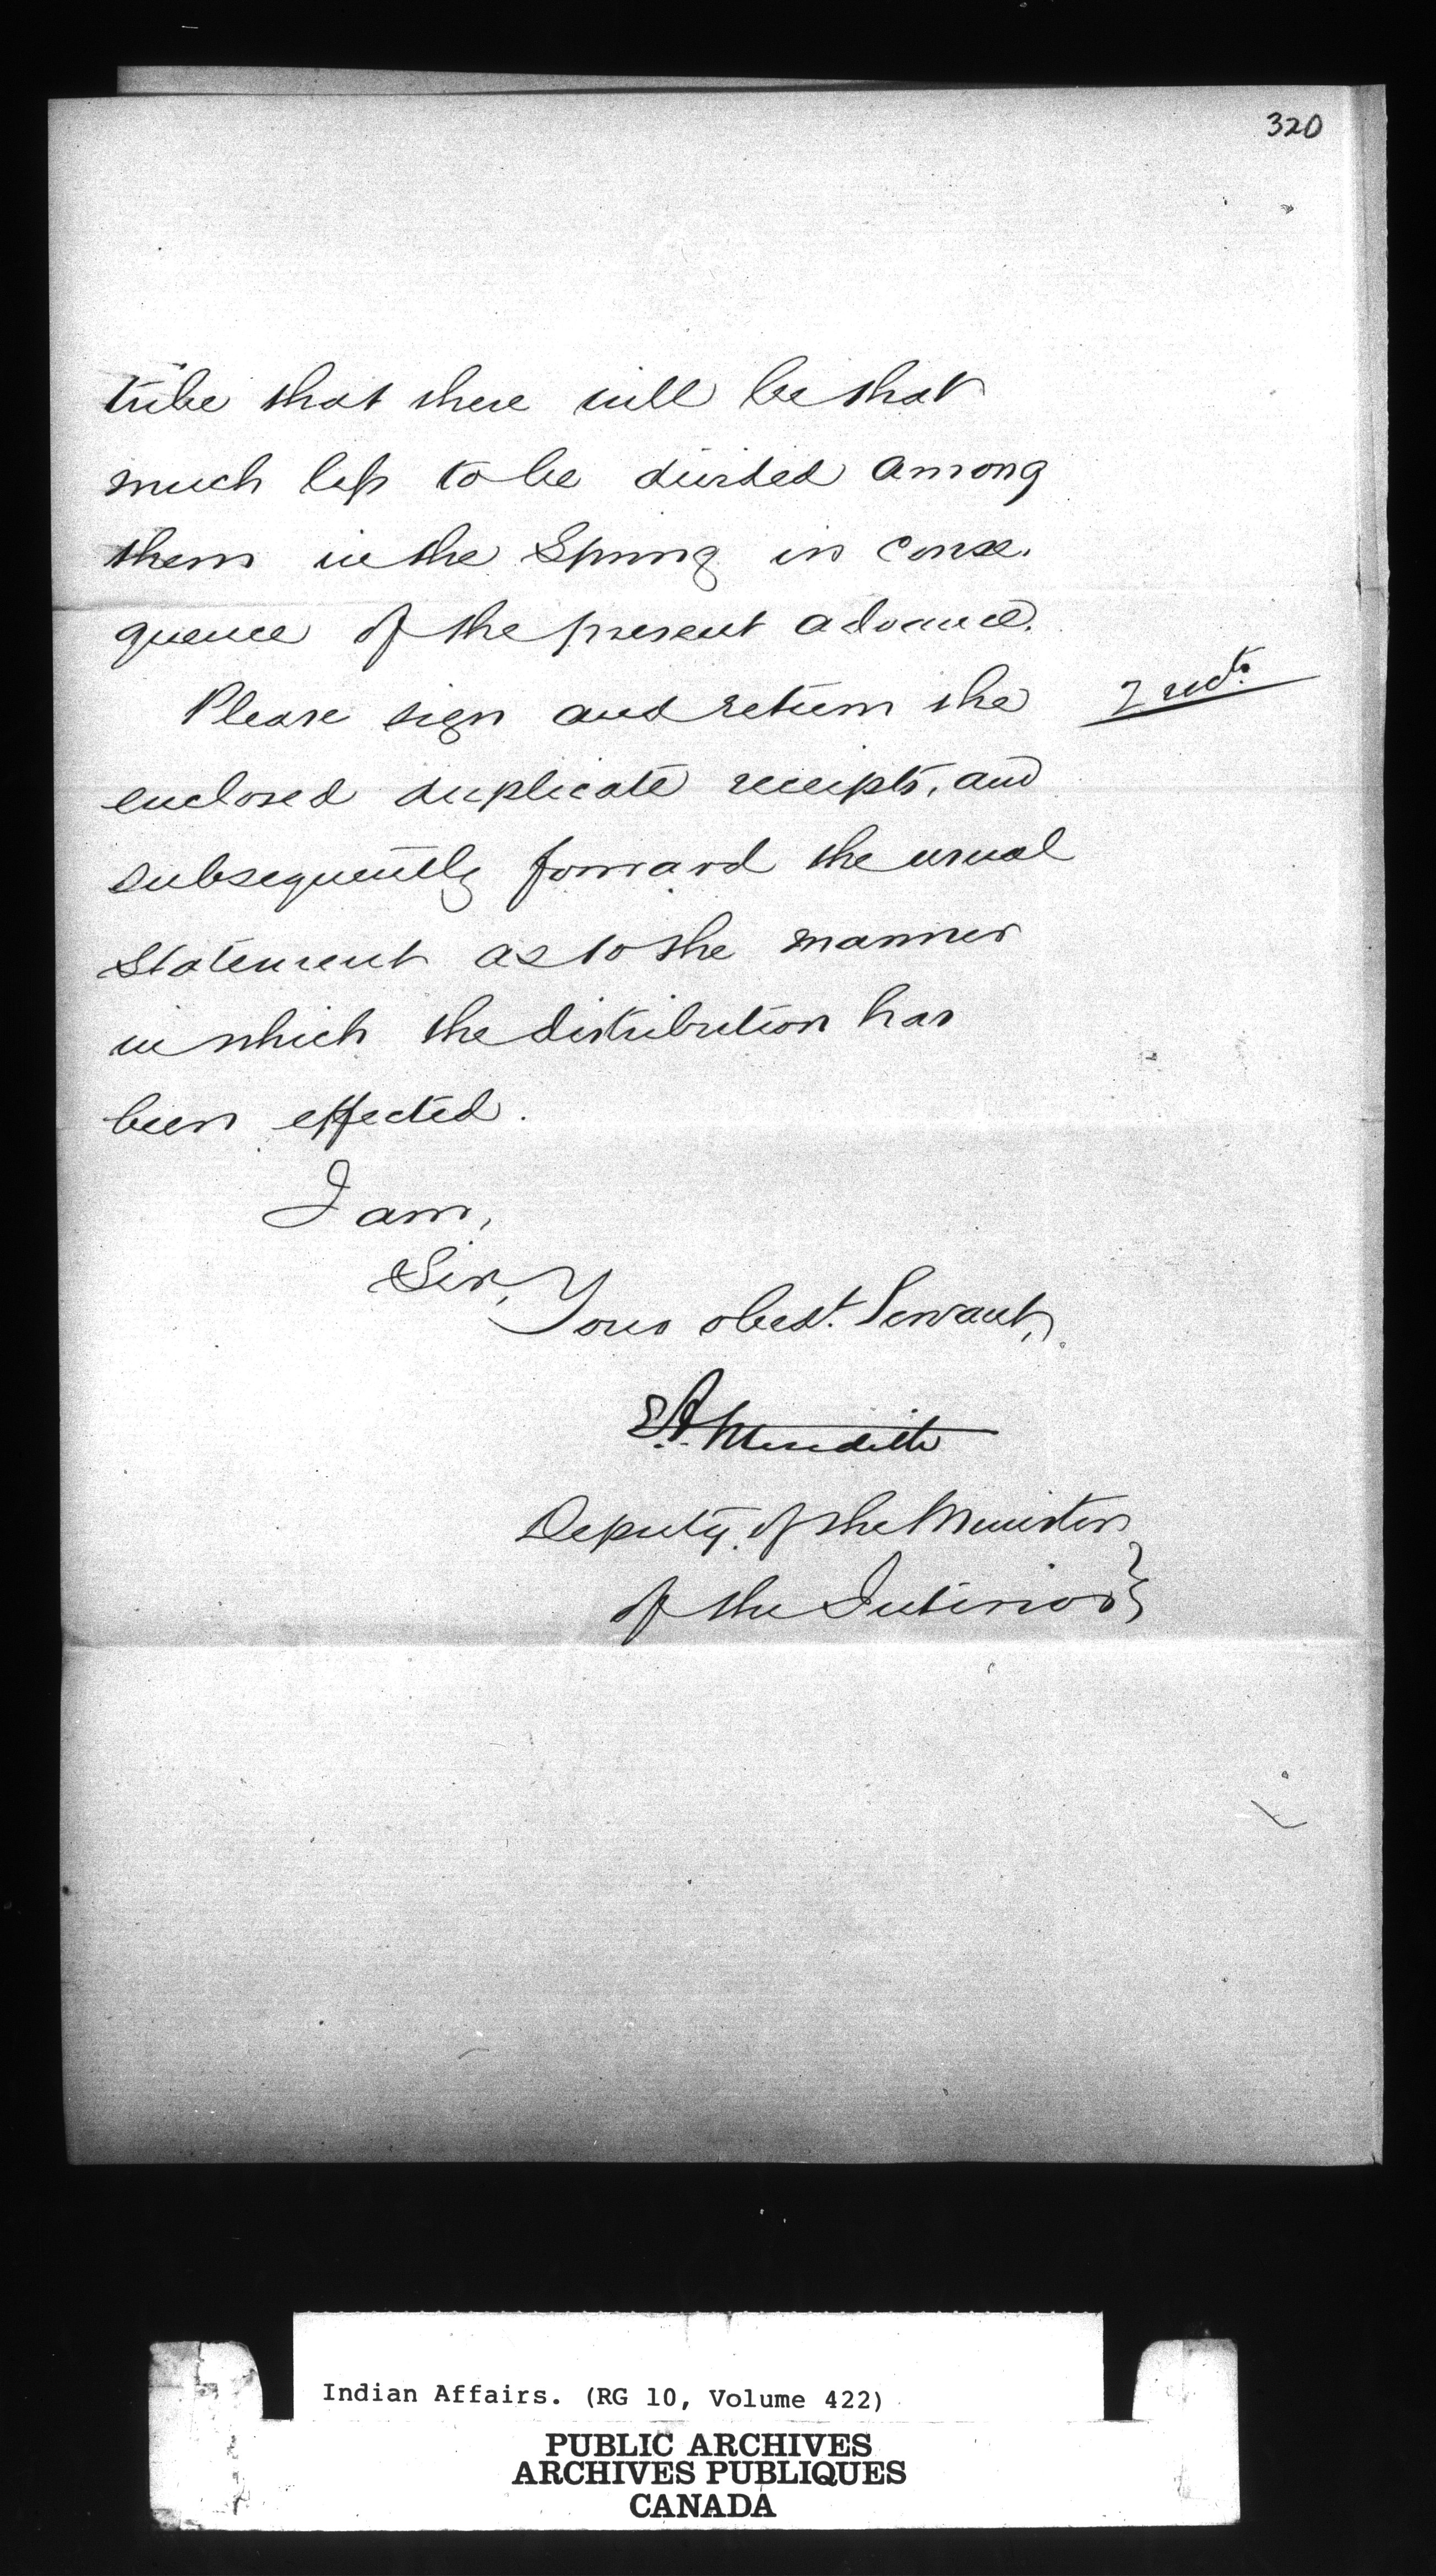 320
tribe that there will be that
much less to be divided among
them in the Spring in conse-
quence of the present advance.
Please sign and return the
enclosed duplicate receipts, and
subsequently forward the usual
statement as to the manner
in which the distribution has
been effected.
I am,
Sir,
Your obedt. Servant,
E.A. Meredith
Deputy of the Minister
of the Interior }
Indian Affairs. (RG 10, Volume 422)
PUBLIC ARCHIVES
ARCHIVES PUBLIQUES
CANADA